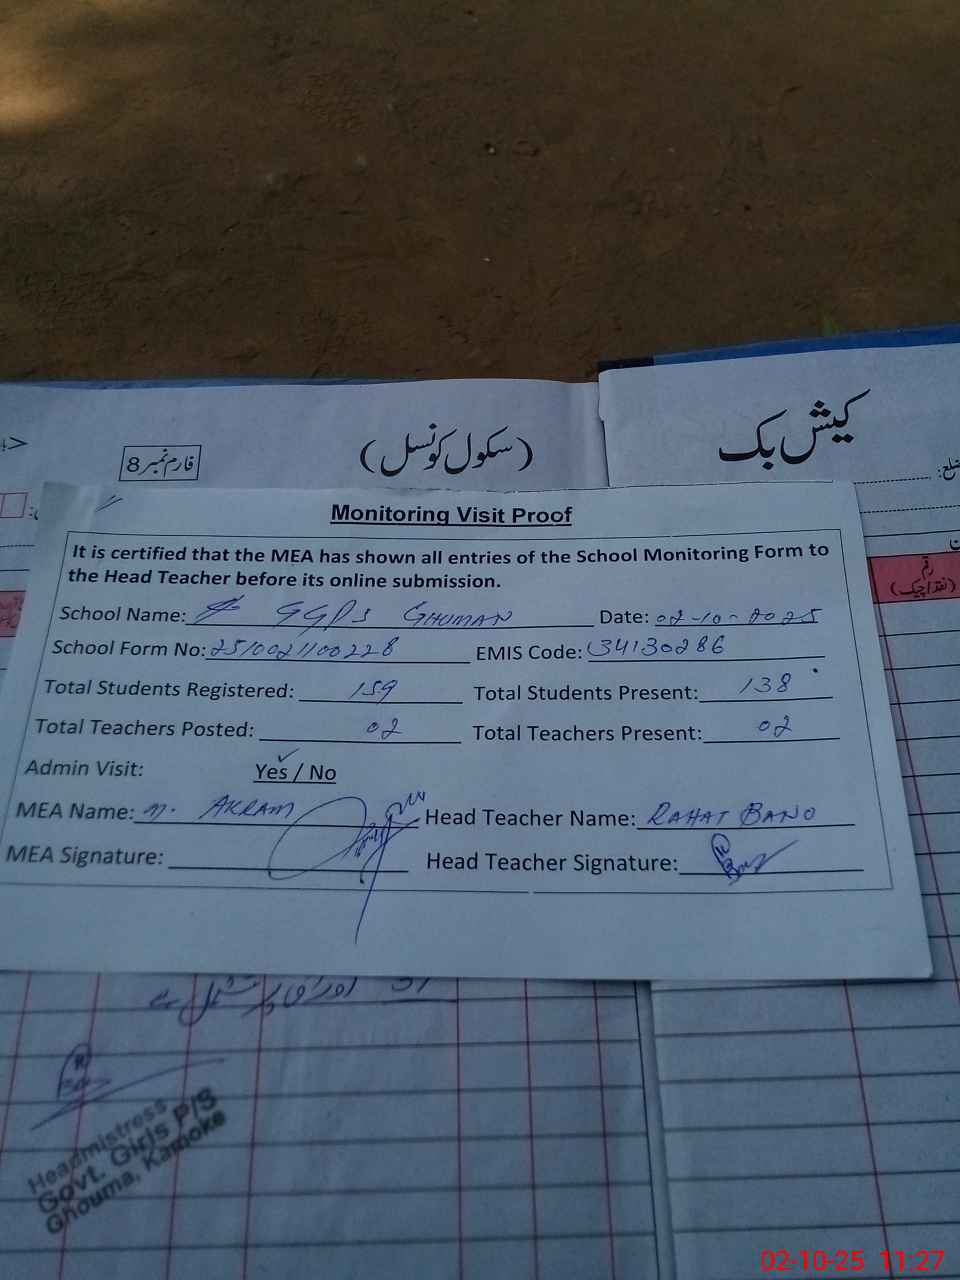 کیش بک
(سکول کونسل)
فارم نمبر 8
ضلع:
رقم
(نقد/چیک)
Monitoring Visit Proof
It is certified that the MEA has shown all entries of the School Monitoring Form to
the Head Teacher before its online submission.
School Name: GGPS GHUMAN Date: 02-10-2025
School Form No: 2510021100228 EMIS Code: 34130286
Total Students Registered: 159 Total Students Present: 138
Total Teachers Posted: 02 Total Teachers Present: 02
Admin Visit: Yes / No
MEA Name: M. AKRAM Head Teacher Name: RAHAT BANO
MEA Signature: Head Teacher Signature:
Headmistress
Govt. Girls P/S
Ghouma, Kamoke
02-10-25 11:27